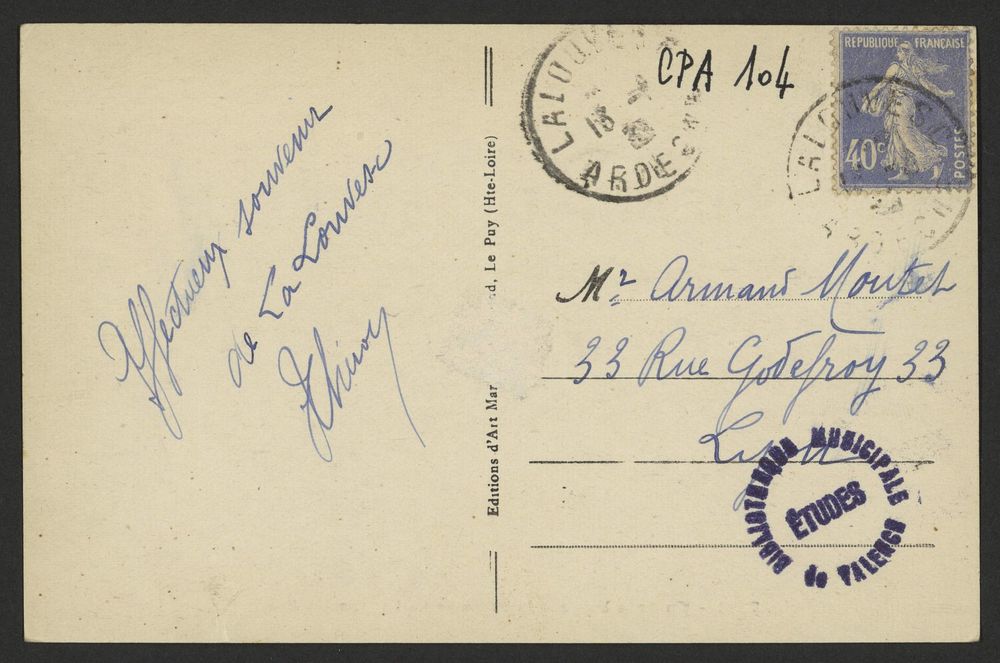 Affectueux souvenir
de La Louvesc
Editions d'Art Mar
d, Le Puy (Hte-Loire)
LALOUVES
13
ARDECHE
CPA 104
REPUBLIQUE FRANÇAISE
40c
POSTES
LALOUVESC
Mr Armand Moutet
33 Rue Godefroy 33
Lyon
BIBLIOTHEQUE MUNICIPALE
ÉTUDES
de VALENCE